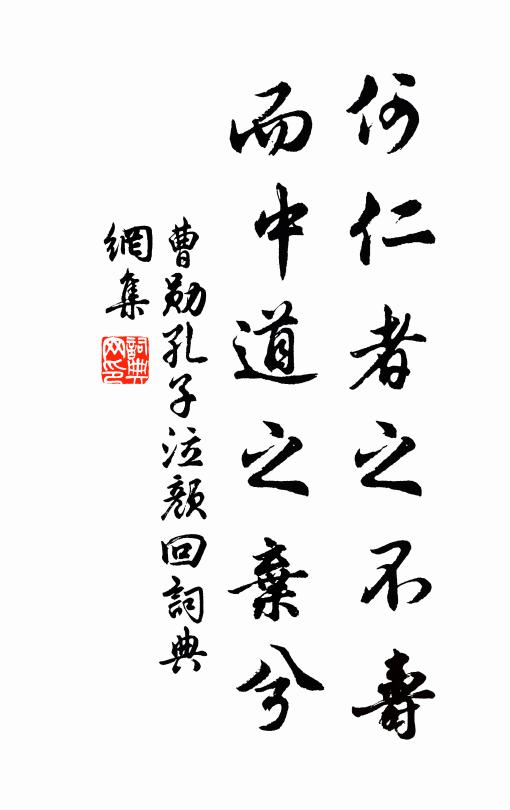 何仁者之不壽
而中道之棄兮
曹勛孔子泣顏回詞典
網集
詞典網印